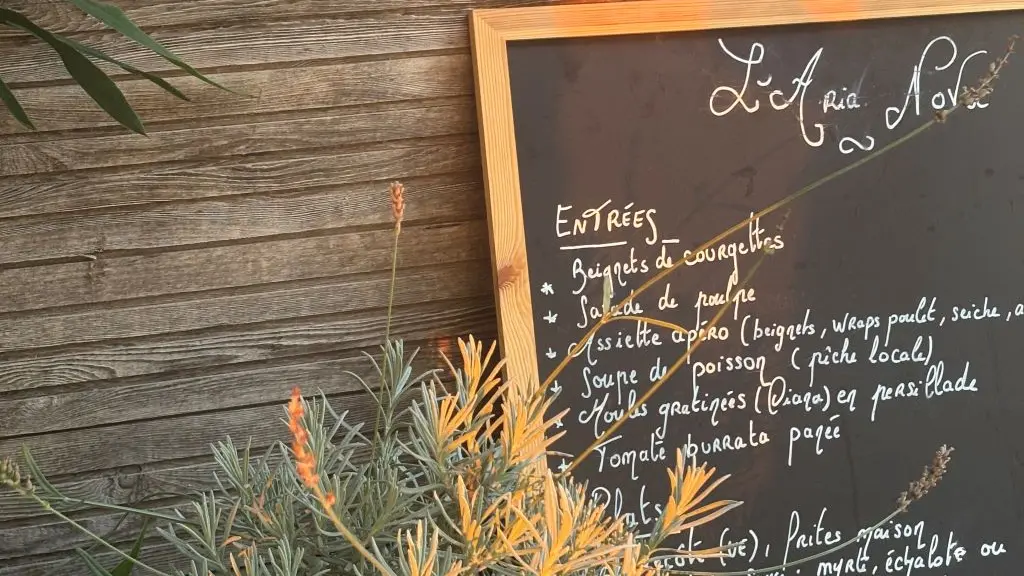 L'Aria Nova
ENTRÉES
* Beignets de courgettes
* Salade de poulpe
* Assiette apéro (beignets, wraps poulet, seiche, a
* Soupe de poisson (pêche locale)
* Moules gratinées (Diana) en persillade
* Tomate burrata panée
Plats
(VF), frites maison
myrte, échalote ou